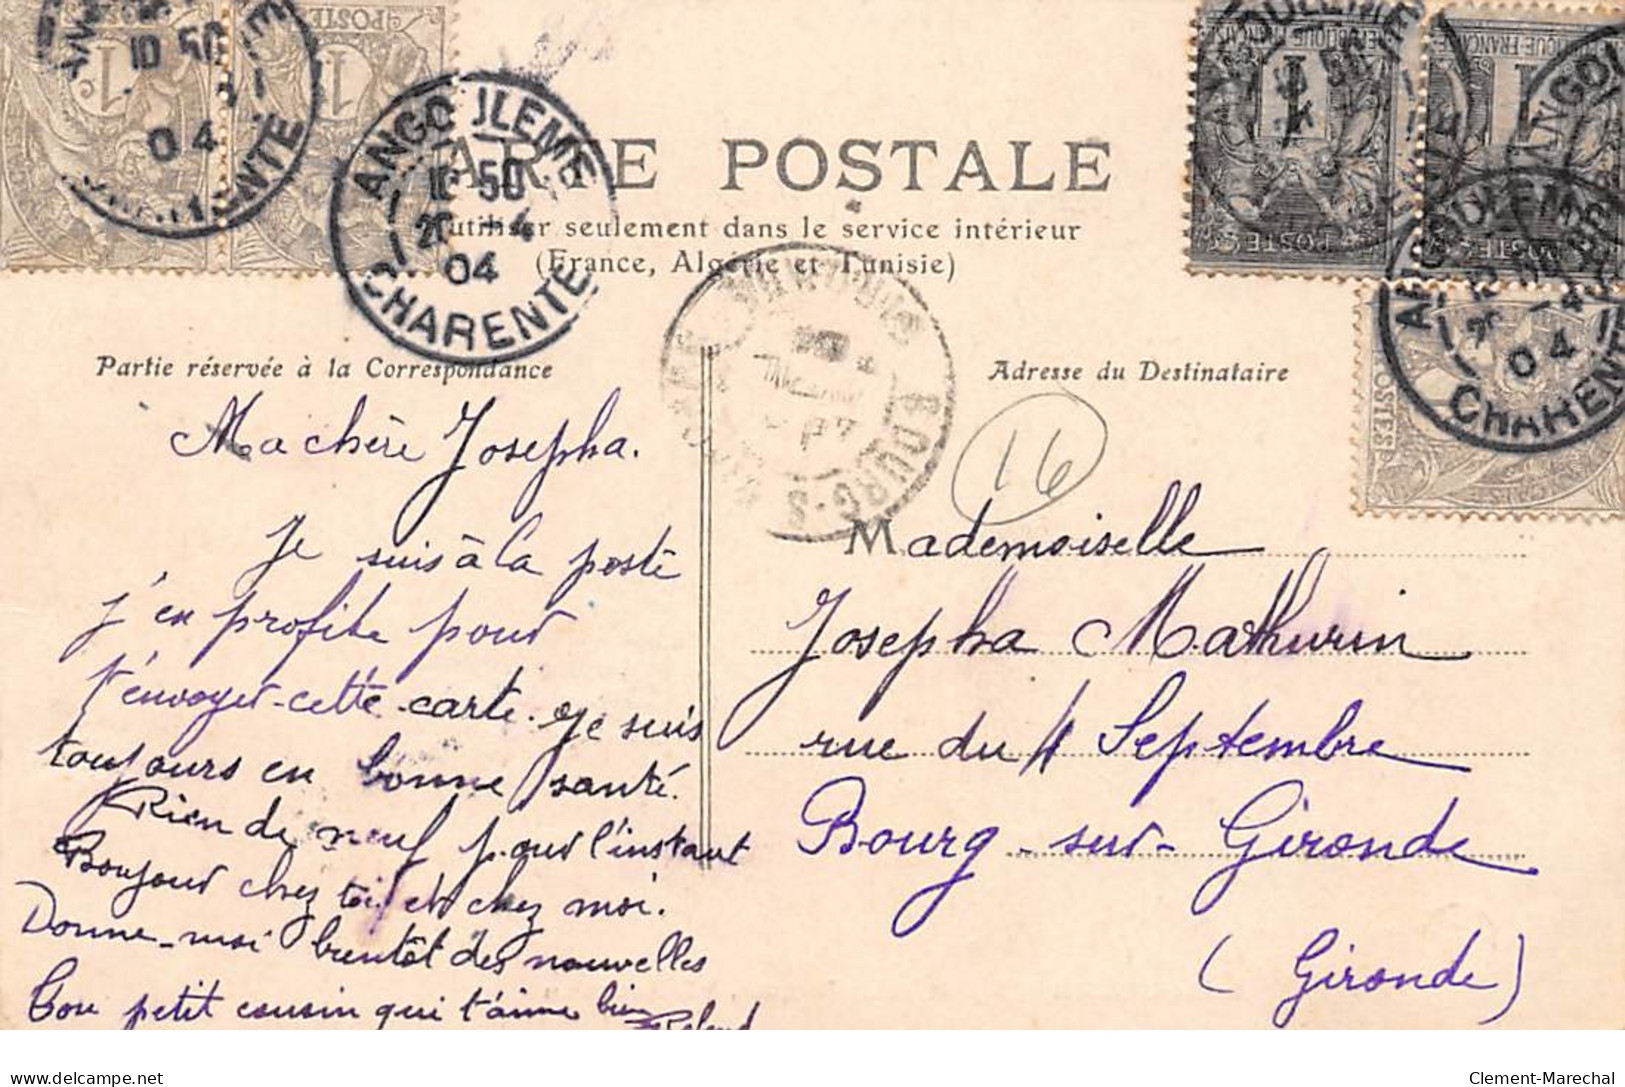 POSTE
1
10 50
04
ANGOULEME
10 50
04
CHARENTE
CARTE POSTALE
utiliser seulement dans le service intérieur
(France, Algérie et Tunisie)
ANGOULEME
REPUBLIQUE FRANÇAISE
1
POSTES
ANGOULEME
04
CHARENTE
POSTES
BOURG-S
Partie réservée à la Correspondance
Adresse du Destinataire
16
Ma chère Josepha.
Je suis à la poste
j'en profite pour
t'envoyer cette carte. Je suis
toujours en bonne santé.
Rien de neuf pour l'instant
Bonjour chez toi et chez moi.
Donne-moi bientôt des nouvelles
Ton petit cousin qui t'aime bien
Roland
Mademoiselle
Josepha Mathurin
rue du 4 Septembre
Bourg-sur-Gironde
(Gironde)
delcampe.net
Clement-Marechal